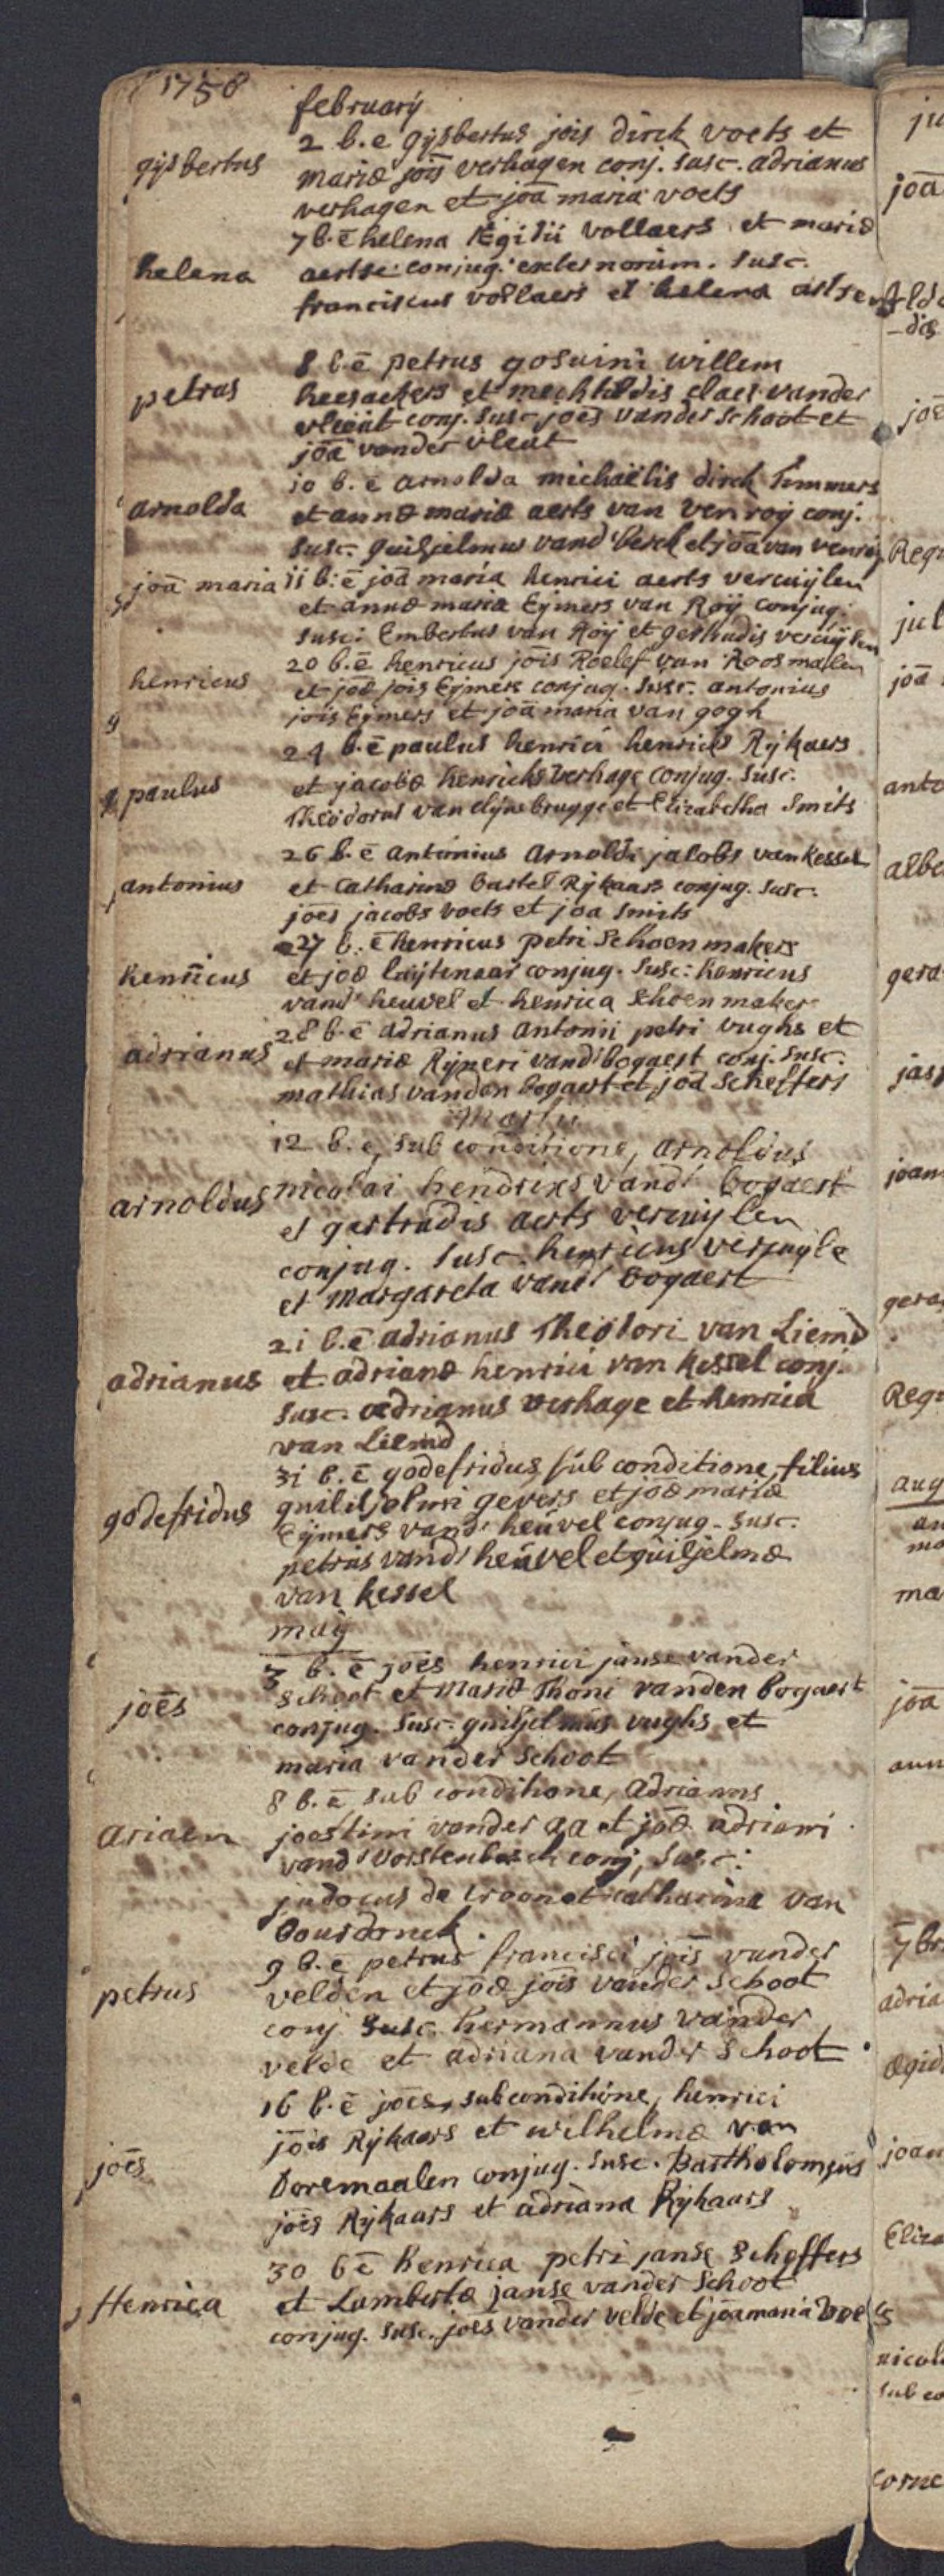 1758
february
2 b.e gijsbertus jois dirck voets et
gijsbertus
mariæ jois verhagen conj. susc. adrianus
verhagen et joā maria voets
7 b.ē helena Ægidii vollaers et mariæ
helena
aertse conjug. externorum. susc.
franciscus vollaers et helena
8 b.ē petrus gosuini willem
petrus
heesackers et mechtildis claes vander
vleut conj. susc joēs vander schoot et
joā vander vleut
10 b.ē arnolda michaëlis dirck Timmers
arnolda
et annæ mariæ aerts van venroij conj.
susc. guiljelmus vand' berck et joā van venroij
joā maria
11 b:ē joā maria henrici aerts vercuijlen
et annæ mariæ Eijmers van Roij conjug.
susc: Embertus van Roij et gertrudis vercuijlen
20 b.ē henricus jōis Roelef van Roosmalen
henricus
et joæ jois Eijmers conjug. susc. antonius
jois Eijmers et joā maria van gogh
24 b.ē paulus henrici henricks Rijkaers
paulus
et jacobæ henricks verhage conjug. susc.
Theodorus van elijnsbrugge et Elizabetha Smits
26 b.ē antonius arnoldi jacobs van kessel
antonius
et catharinæ bartel Rijkaars conjug. susc.
joēs jacobs voets et joa smits
27 b.ē henricus petri schoenmakers
henricus
et joæ luijtenaar conjug. susc: henricus
vand' heuvel et henrica schoenmaker
28 b.ē adrianus antonii petri vughs et
adrianus
et mariæ Rijneri vand' bogaert conj. susc.
mathias vanden bogaert et joā scheffers
Martii
12 b.e, sub conditione, arnoldus
arnoldus
nicolai hendrixs vand' bogaert
et gertrudis aerts vercuijlen
conjug. susc. henricus
et Margareta vand' bogaert
21 b.ē adrianus Theodori van Liemd
adrianus
et adrianæ henrici van kessel conj.
susc. adrianus verhage et henrica
van Liemd
31 b.ē godefridus, sub conditione, filius
godefridus
guililjelmi gevers et joæ mariæ
Eijmers vand' heuvel conjug. susc.
petrus vand' heuvel et guiljelmæ
van kessel
maij
3 b.ē joēs henrici janse vander
joēs
schoot et Mariæ Thoni vanden bogaert
conjug. susc. guiljelmus vughs et
maria vander schoot
8 b.ē sub conditione, adrianus
ariaen
joostini vander aa et joæ adriani
vand' vorstenbosch conj, susc:
judocus de croon et catharina van
bourdonck.
9 b.ē petrus francisci jois vander
petrus
velden et joæ jois vander schoot
conj susc. hermannus vander
velde et adriana vander schoot
16 b.ē joēs, sub conditione, henrici
jōis Rijkaars et wilhelmæ van
joēs
Doremaalen conjug. susc. Bartholomeus
joēs Rijkaars et adriana Rijkaars
30 b ē henrica petri janse scheffers
Henrica
et Lambertæ janse vander schoot
conjug. susc. joēs vander velde et joā maria
joā
joā
jul
joā
anto
gera
joan
gera
aug
ma
joā
adria
joan
Eliza
nicol
sub co
corne